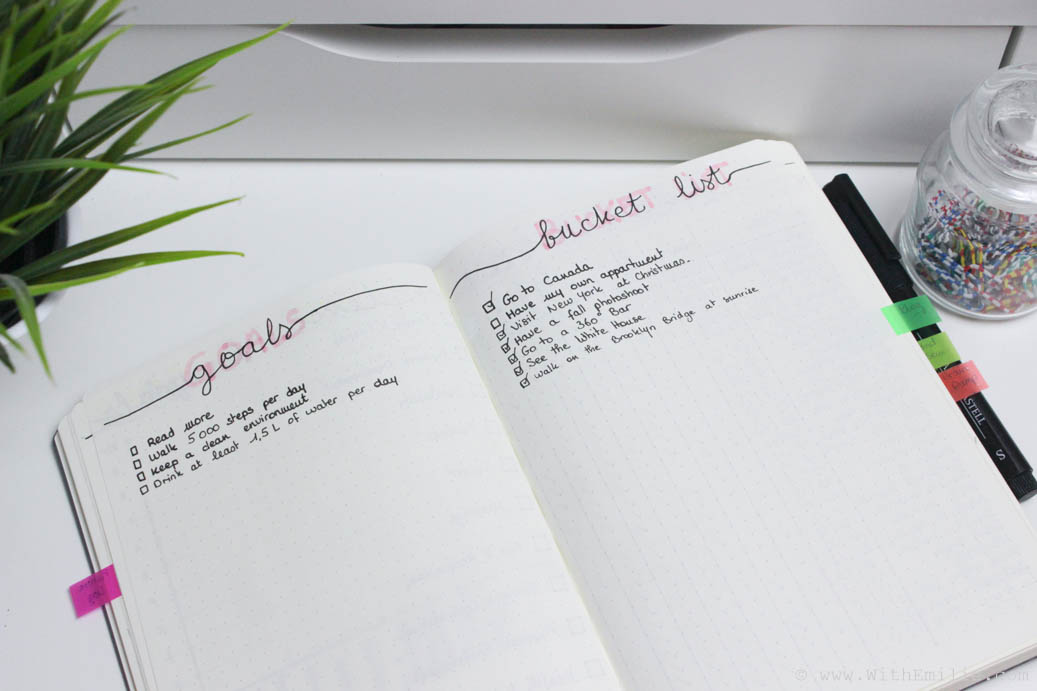 goals
Read more
Walk 5000 steps per day
Keep a clean environment
Drink at least 1,5 L of water per day
bucket list
Go to Canada
Have my own appartment
Visit New York at Christmas.
Have a fall photoshoot
Go to a 360° Bar
See the White House
Walk on the Brooklyn Bridge at sunrise
GOALS
BUCKET LIST
STELL
S
© www.WithEmilie.com